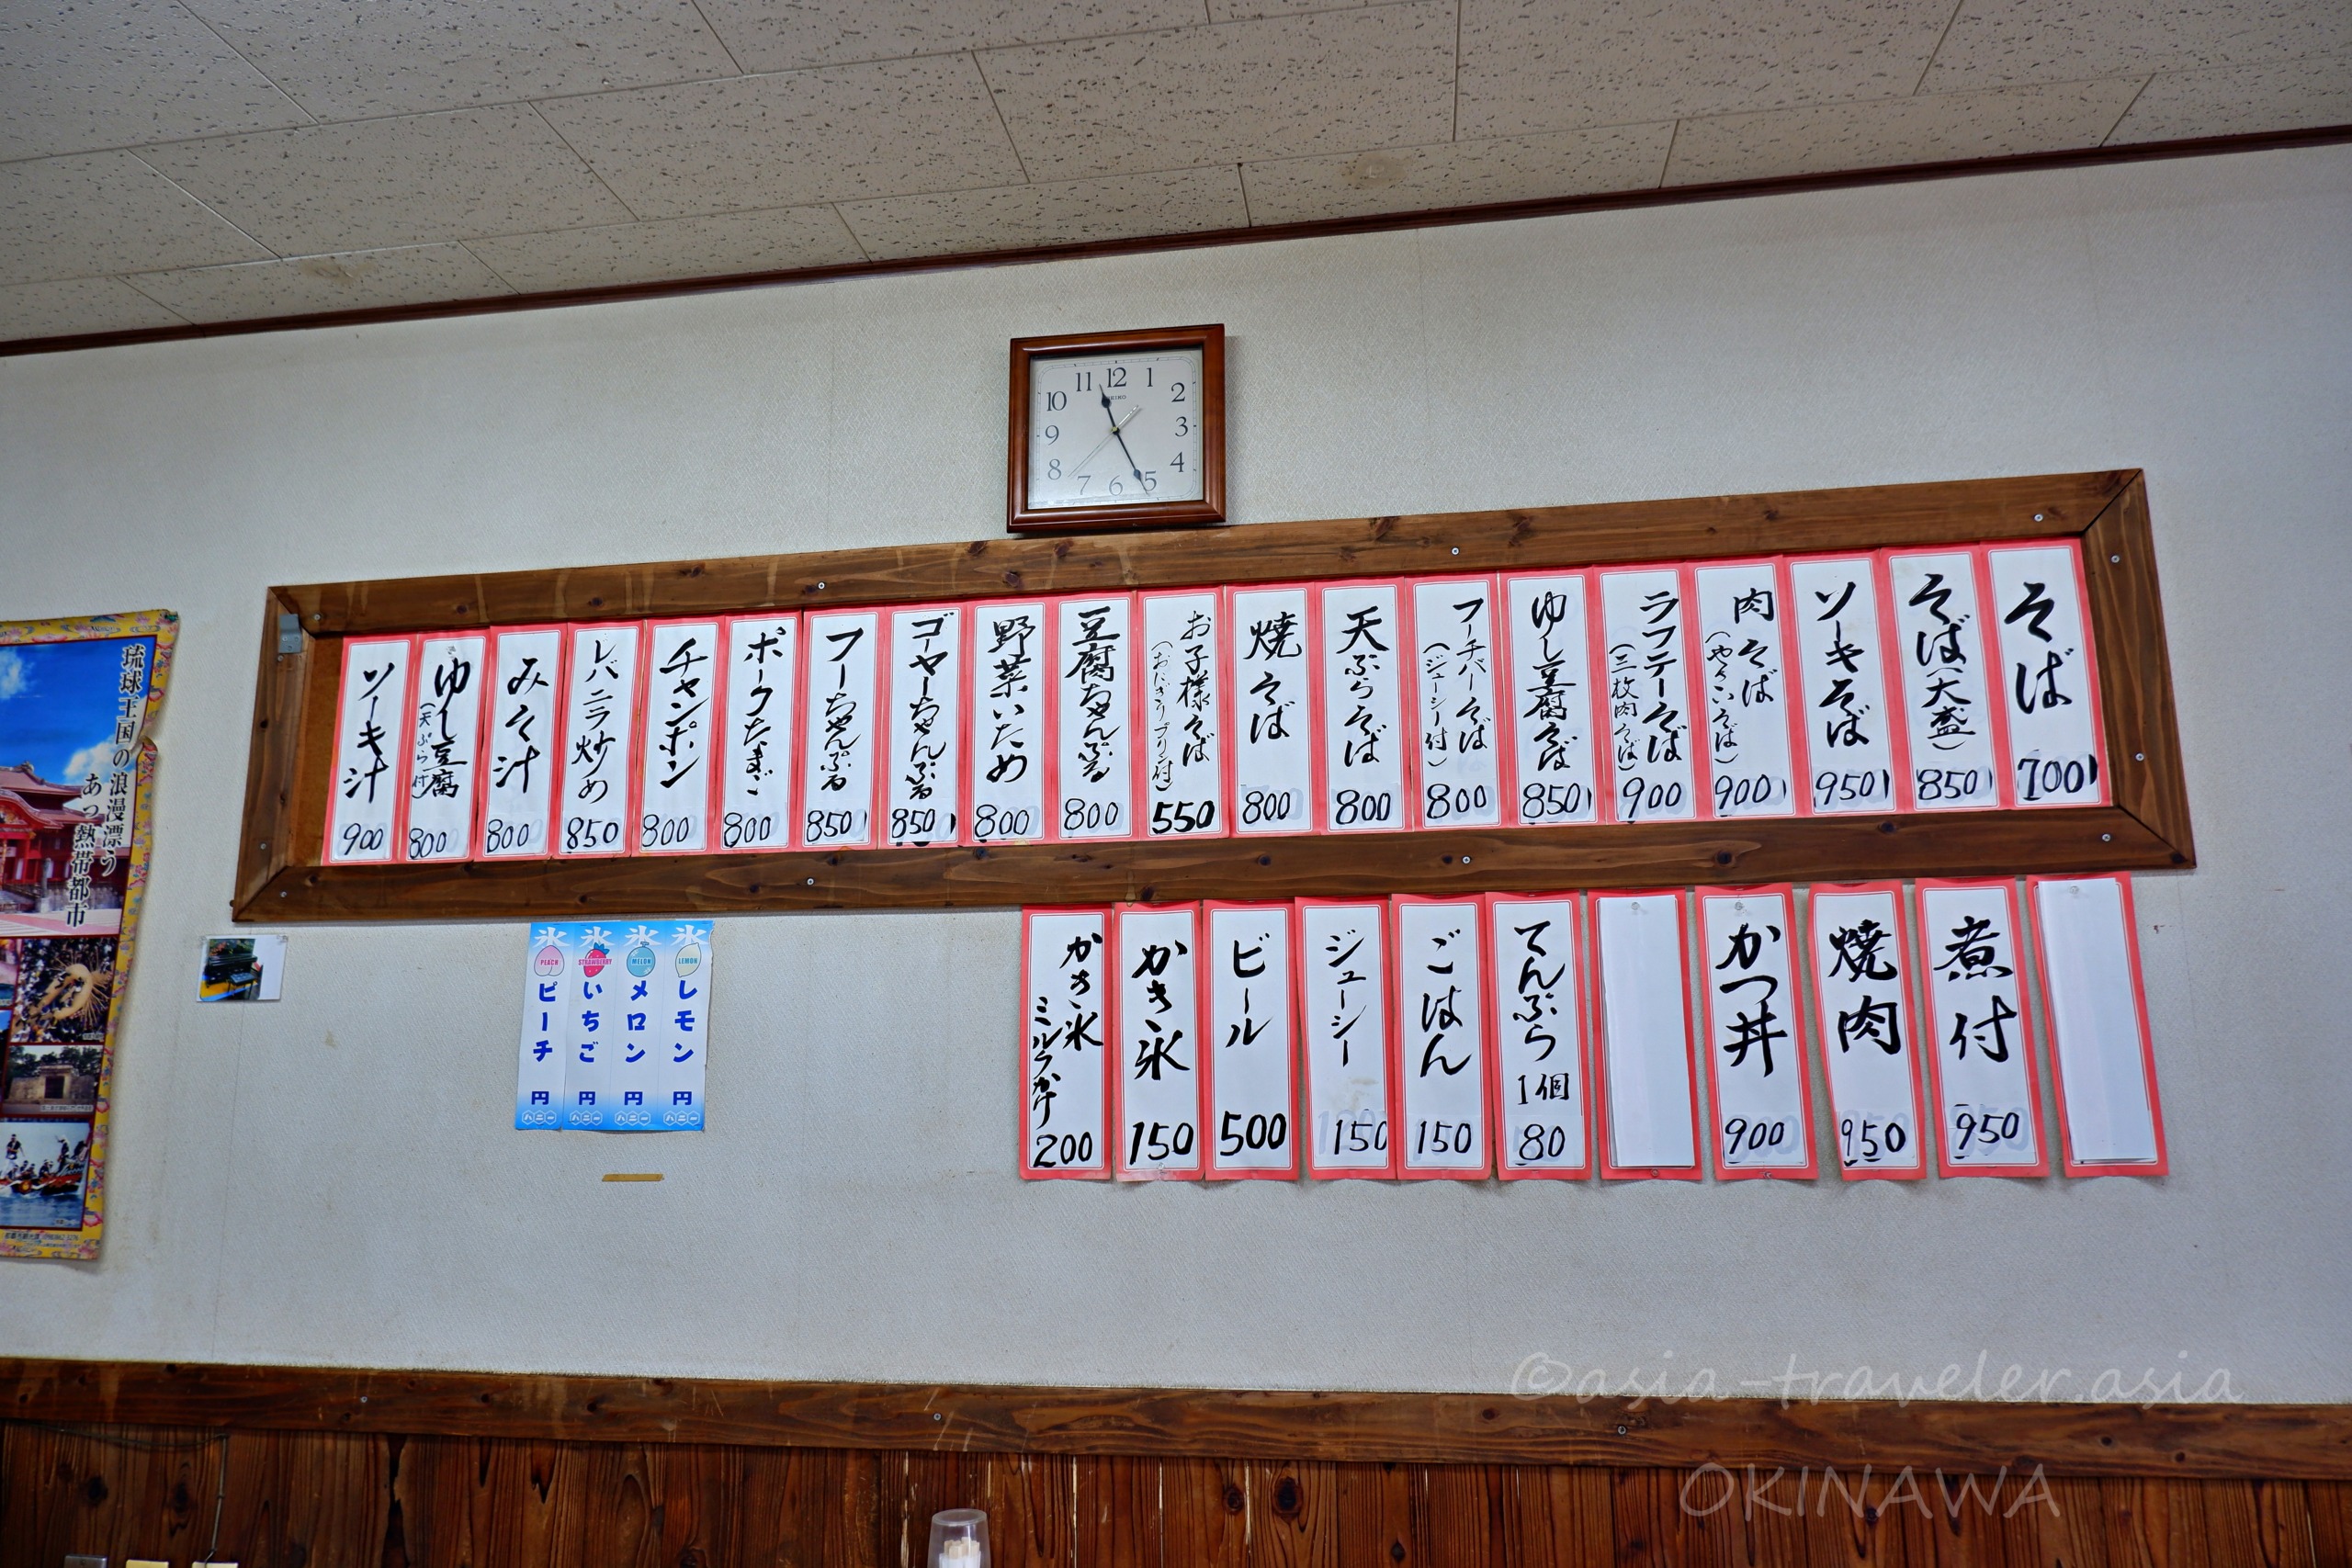 11 12 1
10 2
9 3
8 4
7 6 5
そば 700
そば(大盛) 850
ソーキそば 950
肉そば (やさいそば) 900
ラフテーそば (三枚肉そば) 900
ゆし豆腐そば 850
フーチバーそば (ジューシー付) 800
天ぷらそば 800
焼そば 800
お子様そば (おにぎりプリン付) 550
豆腐ちゃんぷる 800
野菜いため 800
ゴーヤーちゃんぷる 850
フーちゃんぷる 850
ポークたまご 800
チャンポン 800
レバニラ炒め 850
みそ汁 800
ゆし豆腐 (天ぷら付) 800
ソーキ汁 900
煮付 950
焼肉 950
かつ丼 900
てんぷら 1個 80
ごはん 150
ジューシー 150
ビール 500
かき氷 150
かき氷 ミルクかけ 200
氷 LEMON レモン 円
氷 MELON メロン 円
氷 STRAWBERRY いちご 円
氷 PEACH ピーチ 円
琉球王国の浪漫漂う
あつ熱帯都市
©asia-traveler.asia
OKINAWA